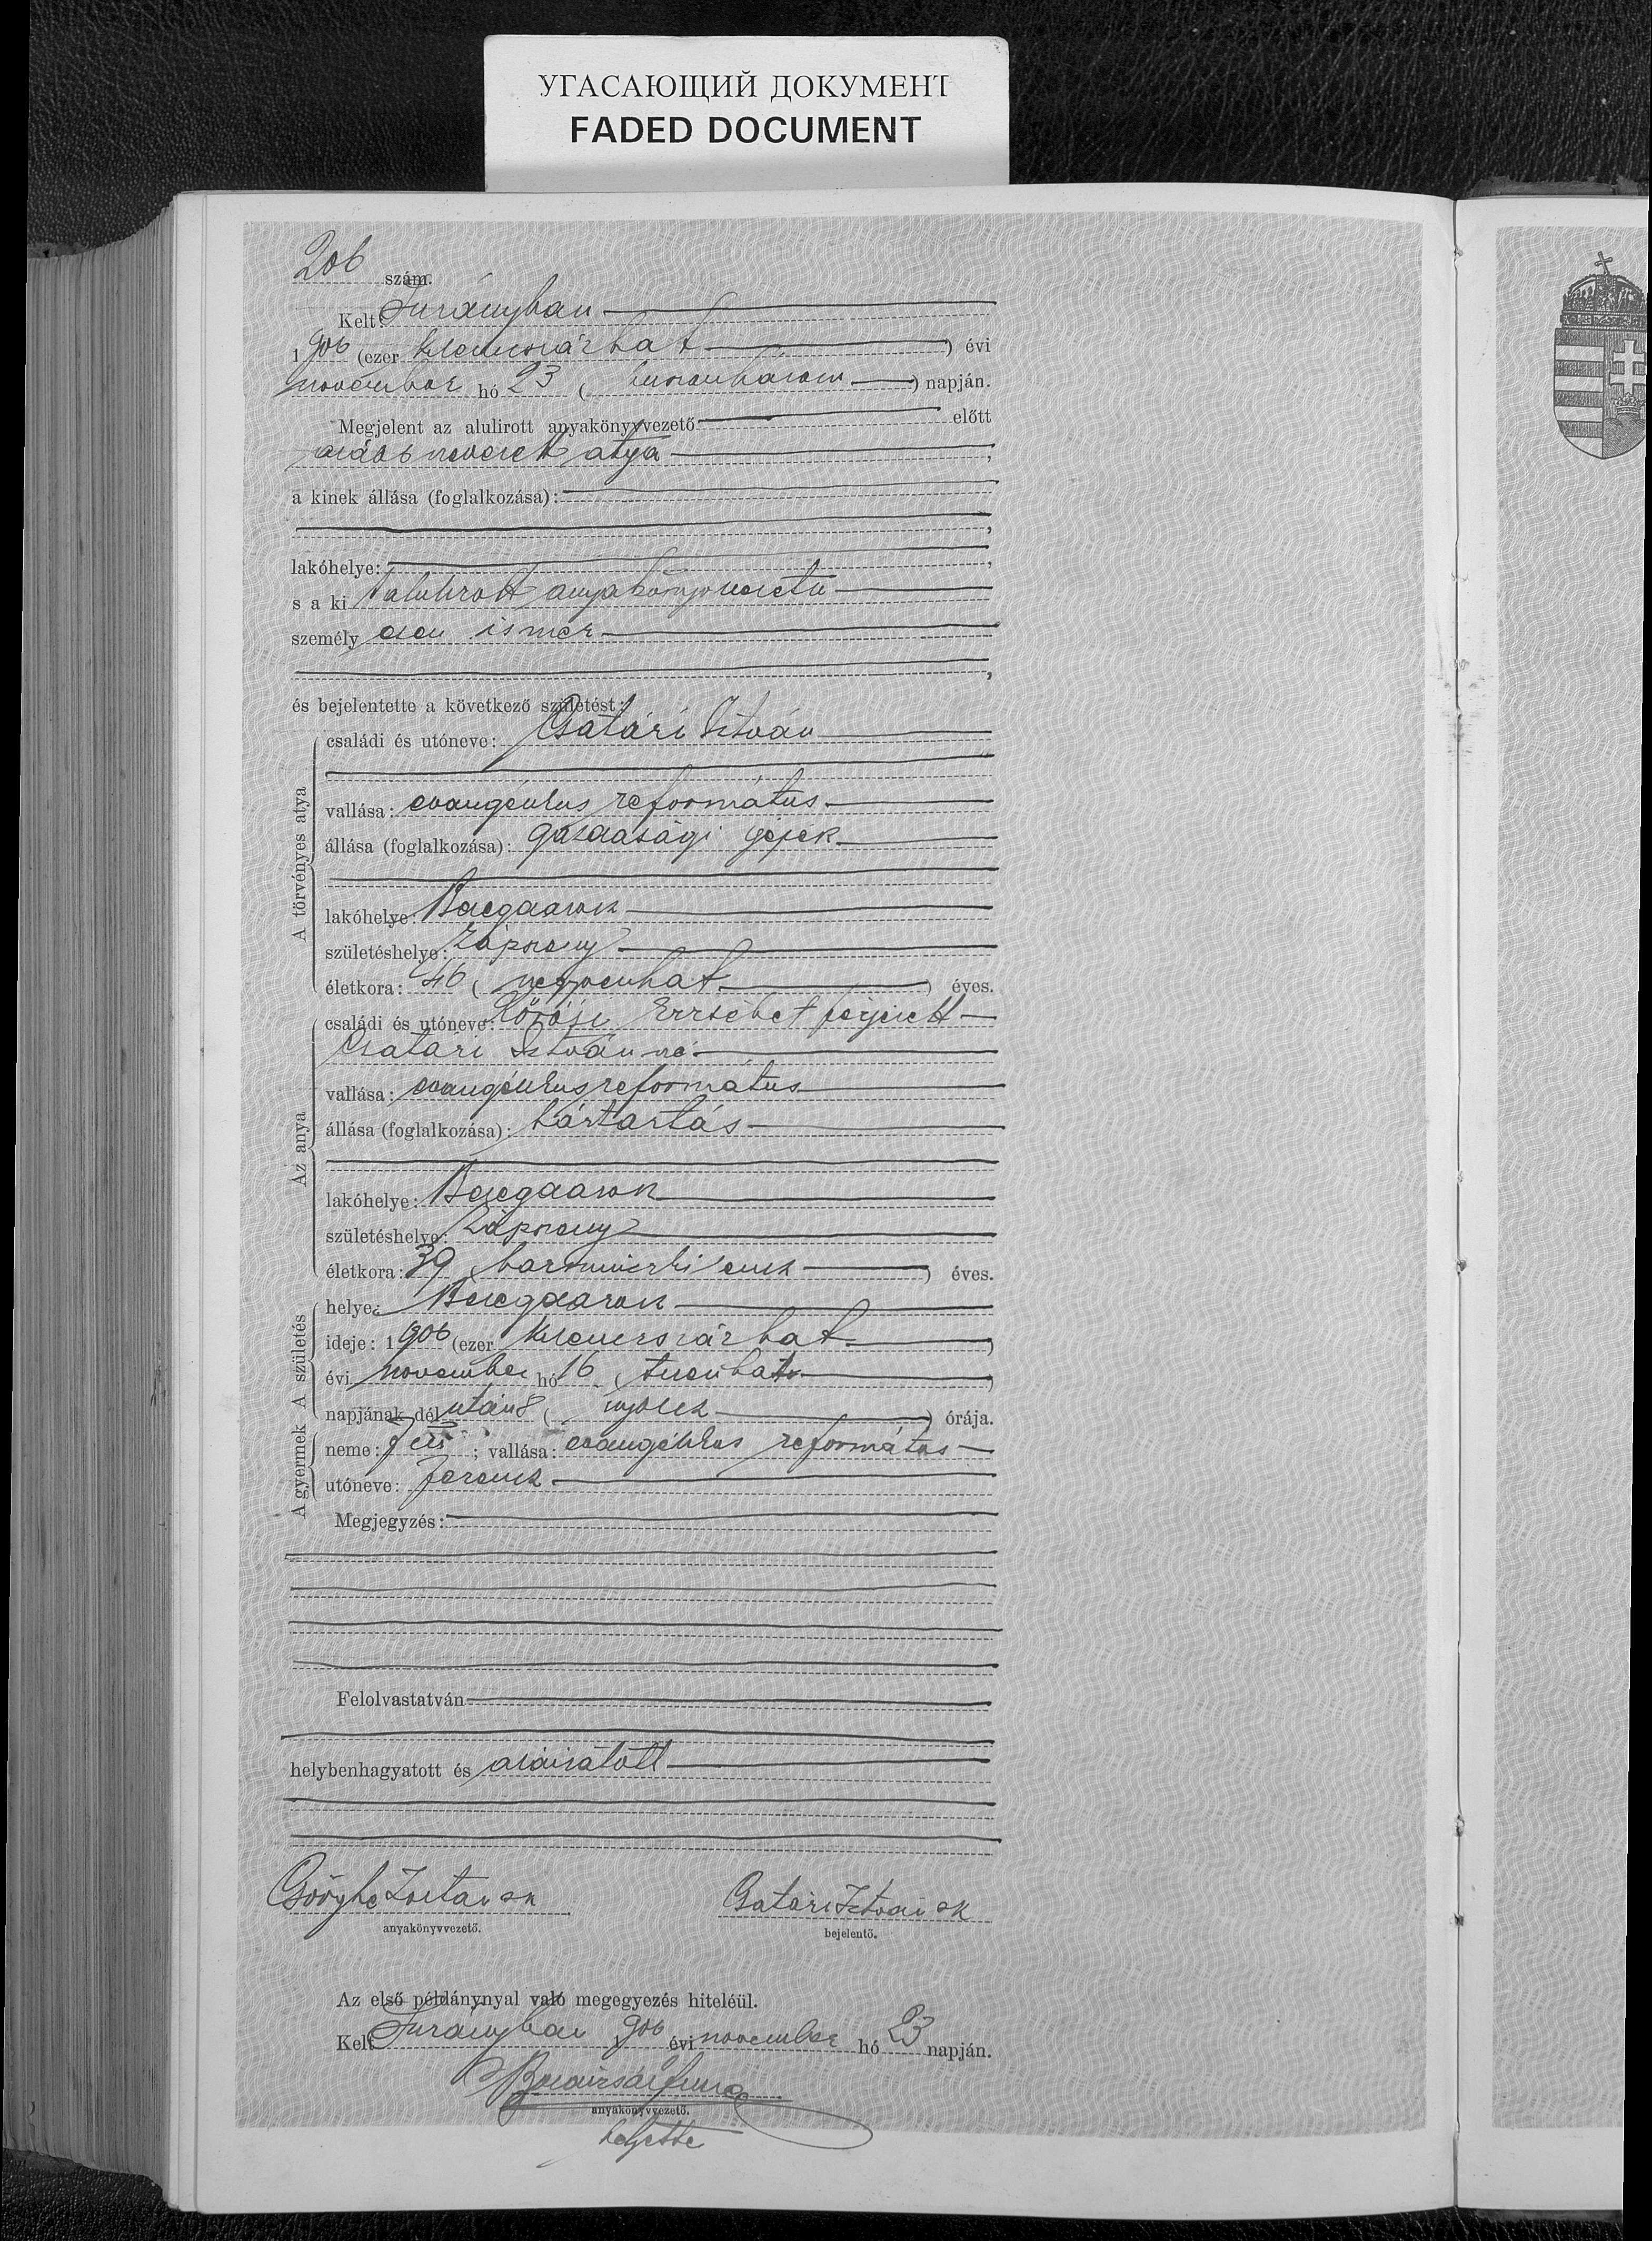 УГАСАЮЩИЙ ДОКУМЕНТ
FADED DOCUMENT
206 szám.
Kelt Surányban
1906 (ezer kilenczszázhat) évi
november hó 23 (huszonhárom) napján.
Megjelent az alulirott anyakönyvvezető előtt
alább nevezett atya,
a kinek állása (foglalkozása):
lakóhelye:
s a ki alulirott anyakönyvvezető
személyesen ismer
és bejelentette a következő születést:
A törvényes atya
családi és utóneve: Csatári István
vallása: evangélikus református
állása (foglalkozása): gazdasági gépész
lakóhelye:
születéshelye: Záprony
életkora: 46 (negyvenhat) éves.
Az anya
családi és utóneve: Erzsébet férjezett
Csatári Istvánné
vallása: evangélikus református
állása (foglalkozása): háztartás
lakóhelye:
születéshelye: Záprony
életkora: 39 (harminczkilencz) éves.
A születés
helye:
ideje: 1906 (ezer kilenczszázhat)
évi november hó 16 (tizenhat)
napjának délután 8 (nyolcz) órája.
A gyermek
neme: fiú; vallása: evangélikus református
utóneve: Ferencz
Megjegyzés:
Felolvastatván
helybenhagyatott és aláiratott
Zoltán sk
anyakönyvvezető.
Csatári István sk
bejelentő.
Az első példánynyal való megegyezés hiteléül.
Kelt Surányban 1906 évi november hó 23 napján.
anyakönyvvezető.
helyettes